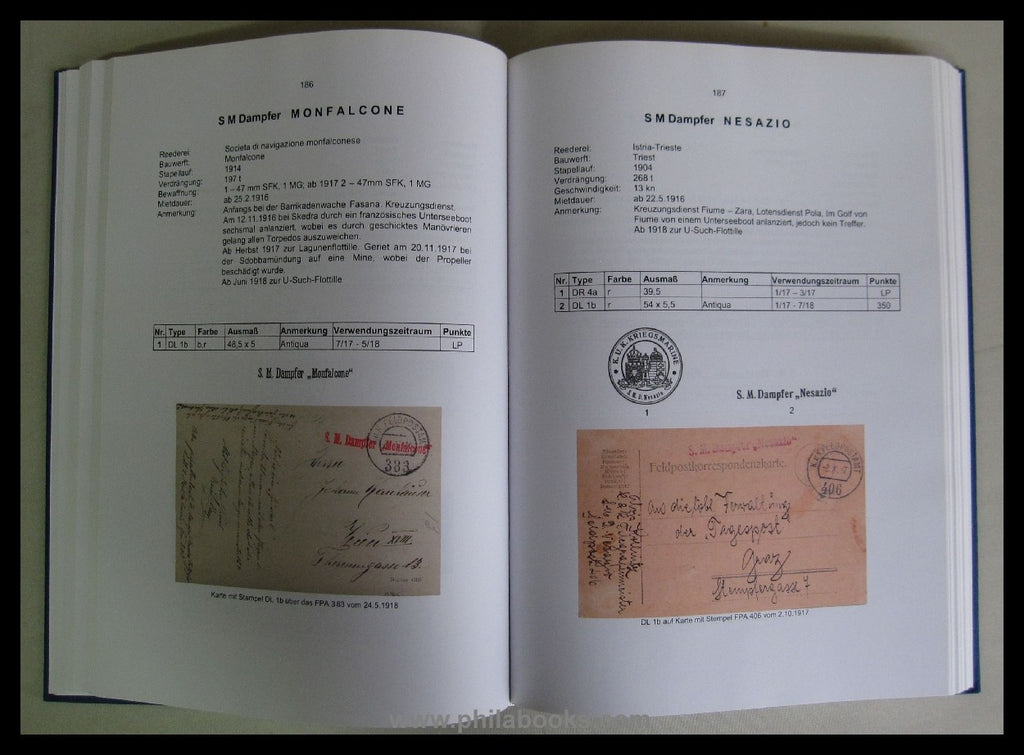 186
S M Dampfer MONFALCONE
Reederei: Societa di navigazione monfalconese
Bauwerft: Monfalcone
Stapellauf: 1914
Verdrängung: 197 t
Bewaffnung: 1 – 47 mm SFK, 1 MG; ab 1917 2 – 47mm SFK, 1 MG
Mietdauer: ab 25.2.1916
Anmerkung: Anfangs bei der Barrikadenwache Fasana. Kreuzungsdienst.
Am 12.11.1916 bei Skedra durch ein französisches Unterseeboot
sechsmal anlanziert, wobei es durch geschicktes Manövrieren
gelang allen Torpedos auszuweichen.
Ab Herbst 1917 zur Lagunenflottille. Geriet am 20.11.1917 bei
der Sdobbamündung auf eine Mine, wobei der Propeller
beschädigt wurde.
Ab Juni 1918 zur U-Such-Flottille
Nr. Type Farbe Ausmaß Anmerkung Verwendungszeitraum Punkte
1 DL 1b b,r 48,5 x 5 Antiqua 7/17 - 5/18 LP
S. M. Dampfer „Monfalcone“
S. M. Dampfer „Monfalcone“
383
Wien XIII.
Karte mit Stempel DL 1b über das FPA 383 vom 24.5.1918
187
S M Dampfer NESAZIO
Reederei: Istria-Trieste
Bauwerft: Triest
Stapellauf: 1904
Verdrängung: 268 t
Geschwindigkeit: 13 kn
Mietdauer: ab 22.5.1916
Anmerkung: Kreuzungsdienst Fiume – Zara, Lotensdienst Pola, Im Golf von
Fiume von einem Unterseeboot anlanziert, jedoch kein Treffer.
Ab 1918 zur U-Such-Flottille
Nr. Type Farbe Ausmaß Anmerkung Verwendungszeitraum Punkte
1 DR 4a r 39,5 1/17 – 3/17 LP
2 DL 1b r 54 x 5,5 Antiqua 1/17 - 7/18 350
K.U.K. KRIEGSMARINE
S.M.D. Nesazio
1
S. M. Dampfer „Nesazio“
2
S. M. Dampfer „Nesazio“
Feldpostkorrespondenzkarte.
406
An die löbl. Verwaltung
der „Tagespost“
Graz
Stempfergasse 7
DL 1b auf Karte mit Stempel FPA 406 vom 2.10.1917
www.philabooks.com